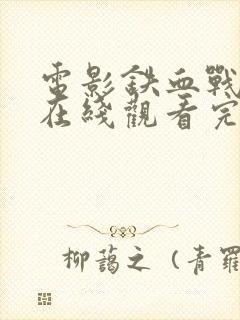 電影鉄血戰
在綫觀看完
柳藹之（青羅